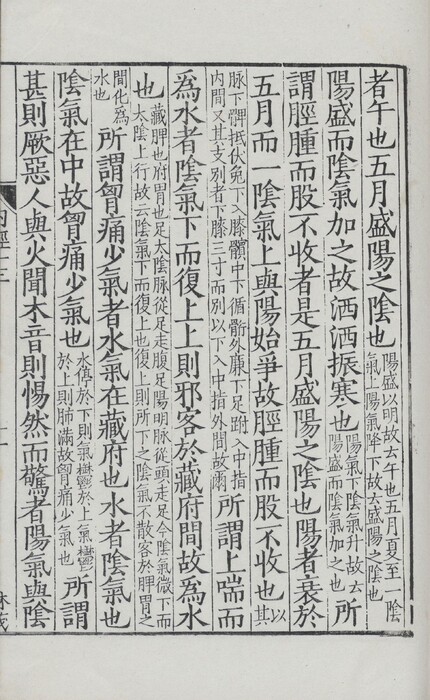 者午也五月盛陽之陰也陽盛以明故云午也五月夏至一陰
氣上陽氣降下故云盛陽之陰也
陽盛而陰氣加之故洒洒振寒也陽氣下陰氣升故云
陽盛而陰氣加之也所
謂脛腫而股不收者是五月盛陽之陰也陽者衰於
五月而一陰氣上與陽始爭故脛腫而股不收也以
其
脉下髀抵伏兔下入膝臏中下循䯒外廉下足跗入中指
內間又其支別者下膝三寸而別以下入中指外間故爾所謂上喘而
爲水者陰氣下而復上上則邪客於藏府間故爲水
也藏脾也府胃也足太陰脉從足走腹足陽明脉從頭走足今陰氣微下而
太陰上行故云陰氣下而復上也復上則所下之陰氣不散客於脾胃之
間化爲
水也所謂胷痛少氣者水氣在藏府也水者陰氣也
陰氣在中故胷痛少氣也水停於下則氣欝於上氣欝
於上則肺滿故胷痛少氣也所謂
甚則厥惡人與火聞木音則惕然而驚者陽氣與陰